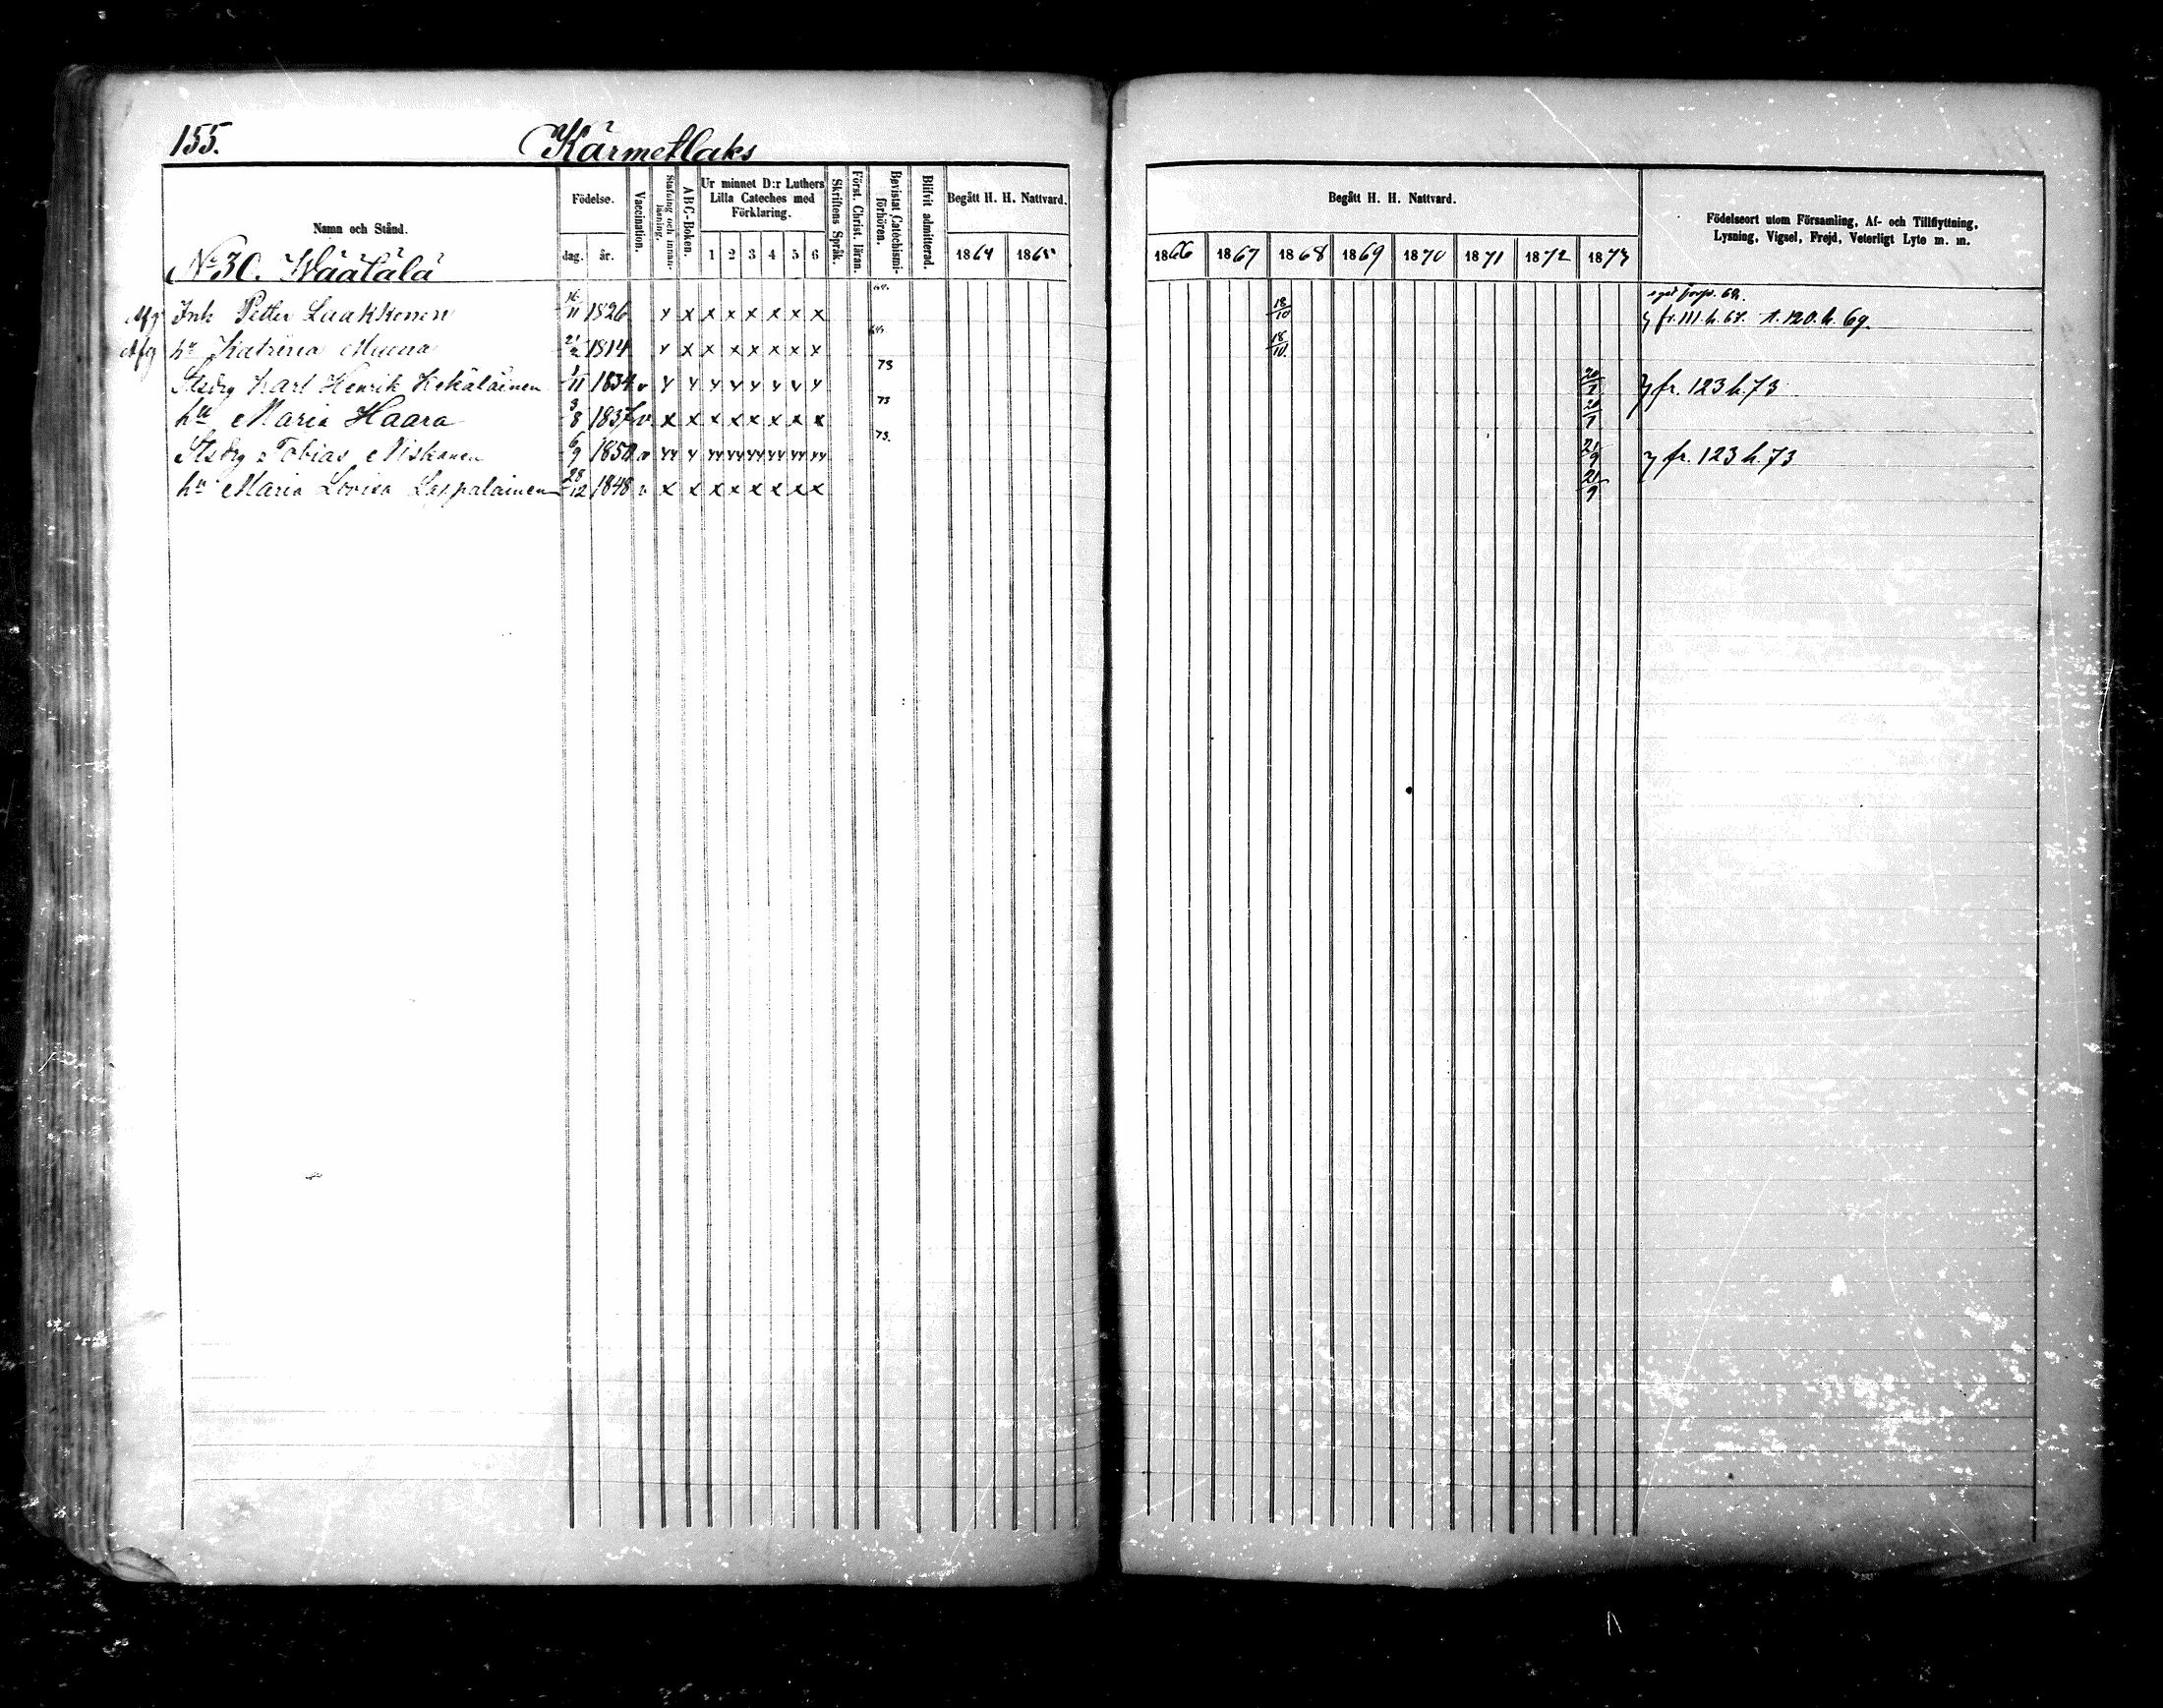 155. Kärmetlaks
Namn och Stånd.
Födelse.
dag. år.
Vaccination.
Stafning och innanläsning.
ABC-Boken.
Ur minnet D:r Luthers Lilla Cateches med Förklaring.
1 2 3 4 5 6
Skriftens Språk.
Först. Christ. läran.
Bevistat Catechismiförhören.
Blifvit admitterad.
Begått H. H. Nattvard.
1864 1865
Begått H. H. Nattvard.
1866 1867 1868 1869 1870 1871 1872 1873
Födelseort utom Församling, Af- och Tillflyttning,
Lysning, Vigsel, Frejd, Veterligt Lyte m. m.
No 30. Wäätälä
Afg Inh Petter Laakkonen 16/11 1826 x x x x x x x x 18/10 fr. 111 h. 67. 1. 120. h. 69.
Afg hu Katrina Muona 1814 x x x x x x x x 18/10
Karl Henrik Kekäläinen 1/11 1834 v 73 20/7 fr. 123 h. 73
hu Maria Haara 3/8 1837 v x x x x x x x x 73 20/7
Tobias Niskanen 6/9 1850 v 73. 21/9 fr. 123 h. 73
hu Maria Lovisa Lappalainen 28/12 1848 v x x x x x x x x 21/9